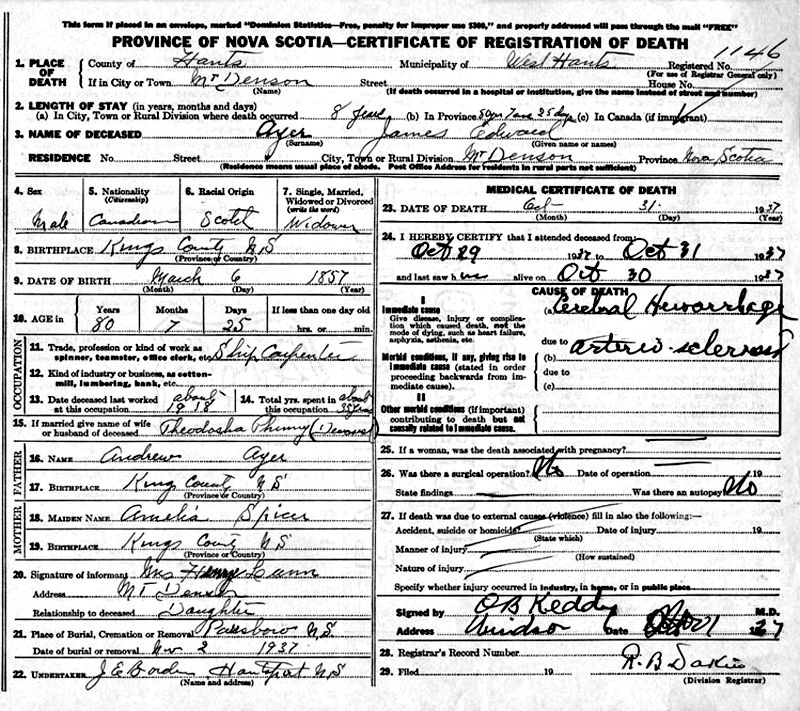 This form if placed in an envelope, marked "Dominion Statistics—Free, penalty for improper use $300," and properly addressed will pass through the mail "FREE"
PROVINCE OF NOVA SCOTIA—CERTIFICATE OF REGISTRATION OF DEATH
1. PLACE OF DEATH
County of Hants Municipality of West Hants Registered No. 1146
(For use of Registrar General only)
If in City or Town Mt Denson Street House No.
(Name) (If death occurred in a hospital or institution, give the name instead of street and number)
2. LENGTH OF STAY (in years, months and days)
(a) In City, Town or Rural Division where death occurred 8 years (b) In Province 80 yrs 7 mos 25 days (c) In Canada (if immigrant)
3. NAME OF DECEASED Ayer James Edward
(Surname) (Given name or names)
RESIDENCE No. Street City, Town or Rural Division Mt Denson Province Nova Scotia
(Residence means usual place of abode. Post Office Address for residents in rural parts not sufficient)
4. Sex Male
5. Nationality (Citizenship) Canadian
6. Racial Origin Scotch
7. Single, Married, Widowed or Divorced (write the word) Widower
8. BIRTHPLACE Kings County NS
(Province or Country)
9. DATE OF BIRTH March 6 1857
(Month) (Day) (Year)
10. AGE in Years Months Days If less than one day old
80 7 25 hrs. or min.
OCCUPATION
11. Trade, profession or kind of work as spinner, teamster, office clerk, etc. Ship Carpenter
12. Kind of industry or business, as cotton-mill, lumbering, bank, etc.
13. Date deceased last worked at this occupation about 1918
14. Total yrs. spent in this occupation about years
15. If married give name of wife or husband of deceased Theodosha (Deceased)
FATHER
16. NAME Andrew Ayer
17. BIRTHPLACE King County NS
(Province or Country)
MOTHER
18. MAIDEN NAME Amelia Spicer
19. BIRTHPLACE Kings County NS
(Province or Country)
20. Signature of informant Mrs Henry
Address Mt Denson
Relationship to deceased Daughter
21. Place of Burial, Cremation or Removal Parrsboro N.S.
Date of burial or removal Nov 2 1937
22. UNDERTAKER J E Borden Hantsport NS
(Name and address)
MEDICAL CERTIFICATE OF DEATH
23. DATE OF DEATH Oct 31. 1937
(Month) (Day) (Year)
24. I HEREBY CERTIFY that I attended deceased from:
Oct 29 1937 to Oct 31 1937
and last saw him alive on Oct 30 1937
CAUSE OF DEATH
I
Immediate cause
Give disease, injury or complication which caused death, not the mode of dying, such as heart failure, asphyxia, asthenia, etc.
(a) Cerebral Hemorrhage
due to
Morbid conditions, if any, giving rise to immediate cause (stated in order proceeding backwards from immediate cause).
(b) arterio-sclerosis
due to
(c)
II
Other morbid conditions (if important) contributing to death but not causally related to immediate cause.
25. If a woman, was the death associated with pregnancy?
26. Was there a surgical operation? No Date of operation 19
State findings Was there an autopsy No
27. If death was due to external causes (violence) fill in also the following:—
Accident, suicide or homicide? Date of injury 19
(State which)
Manner of injury
(How sustained)
Nature of injury
Specify whether injury occurred in industry, in home, or in public place
Signed by O B Keddy M.D.
Address Windsor Date
28. Registrar's Record Number
29. Filed 19 R. B. Dakin
(Division Registrar)